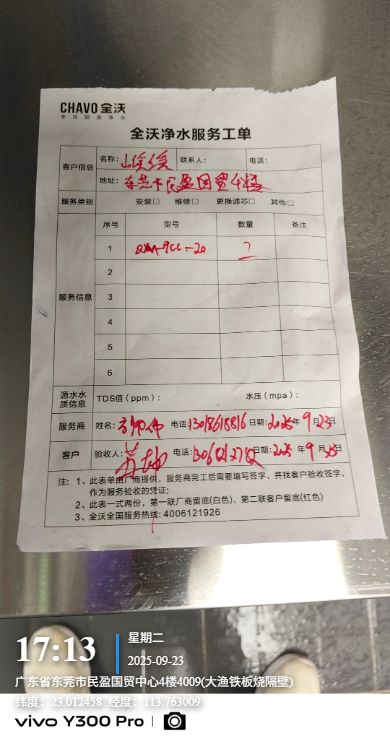 CHAVO 全沃
专注制造净水
全沃净水服务工单
客户信息 名称： 联系人： 电话：
地址：东莞市民盈国贸4楼
服务类别 安装□ 维修□ 更换滤芯□ 其他□
序号 型号 数量 备注
服务信息
1 -20 2
2
3
4
5
6
源水水质信息 TDS值（ppm）： 水压（mpa）：
服务商 姓名： 电话： 日期：2025年9月23日
客户 验收人： 电话： 日期：2025年9月23日
注：1、此表单由厂商提供，服务商完工后需要填写签字，并找客户验收签字，
作为服务验收的凭证；
2、此表一式两份，第一联厂商留底(白色)，第二联客户留底(红色)
3、全沃全国服务热线：4006121926
17:13
星期二
2025-09-23
广东省东莞市民盈国贸中心4楼4009(大渔铁板烧隔壁)
纬度：23.012458 经度：113.763009
vivo Y300 Pro